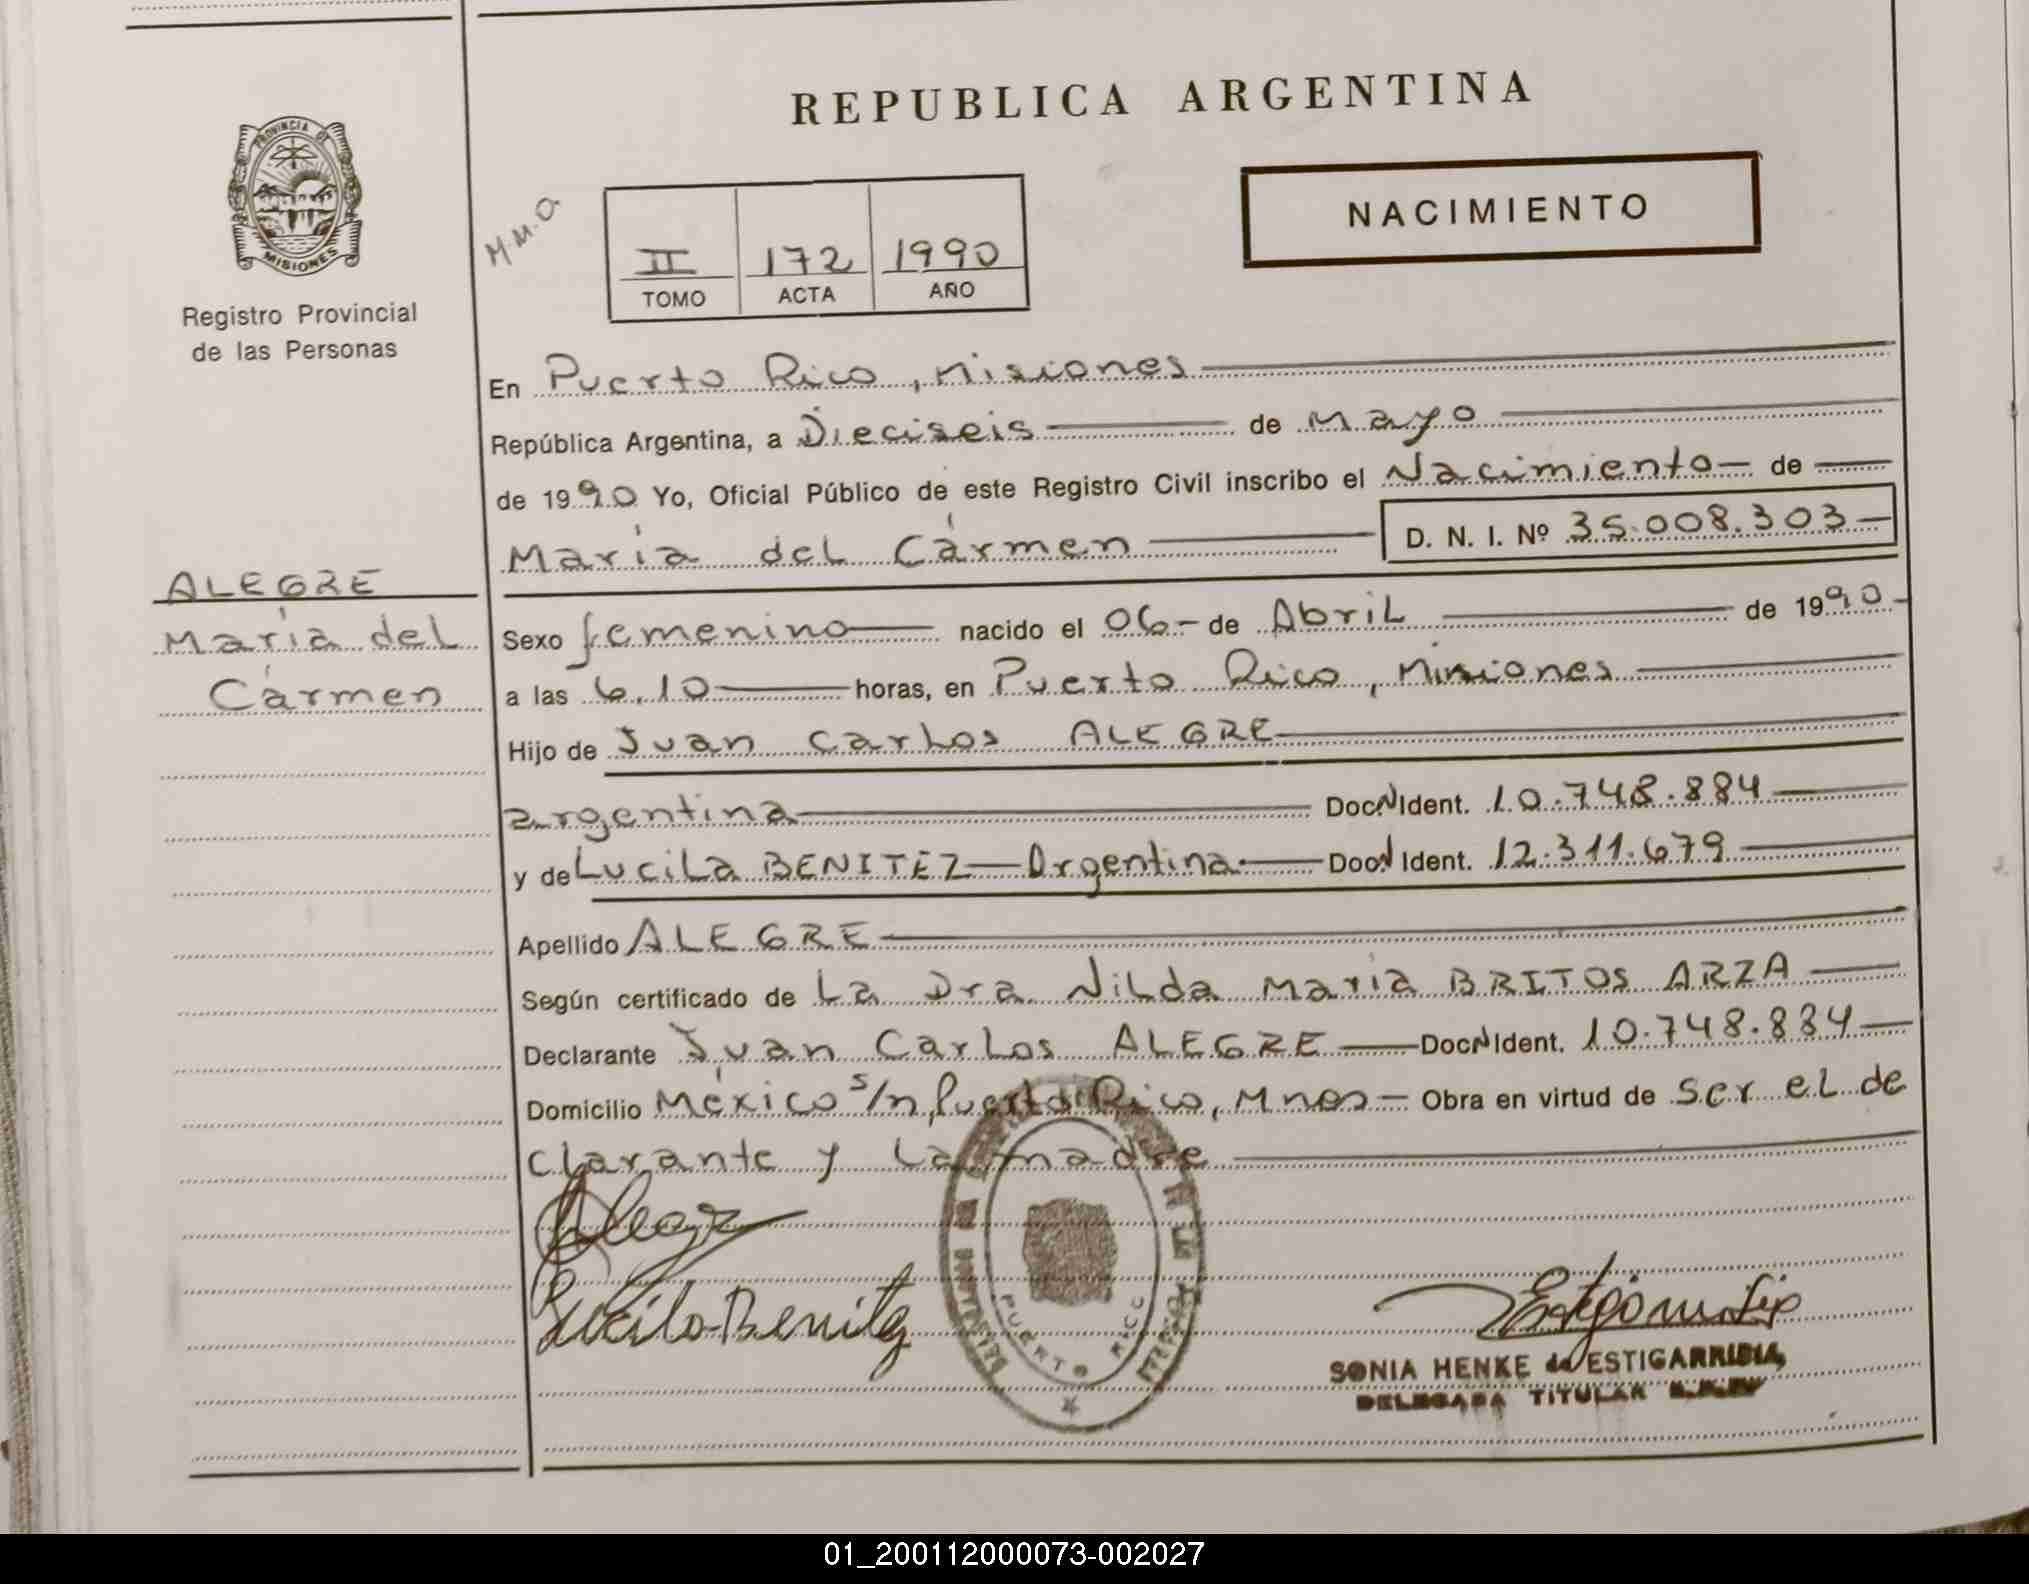 REPUBLICA ARGENTINA
PROVINCIA DE
MISIONES
Registro Provincial
de las Personas
M.M.O
NACIMIENTO
II 172 1990
TOMO ACTA AÑO
En Puerto Rico, Misiones
República Argentina, a Dieciseis de Mayo
de 1990 Yo, Oficial Público de este Registro Civil inscribo el Nacimiento de
María del Cármen D. N. I. Nº 35.008.303
ALEGRE
María del
Cármen
Sexo femenino nacido el 06 de Abril de 1990
a las 6,10 horas, en Puerto Rico, Misiones
Hijo de Juan Carlos ALEGRE
argentina Doc N Ident. 10.748.884
y de Lucila BENITEZ Argentina Doc N Ident. 12.311.679
Apellido ALEGRE
Según certificado de La Dra Nilda María BRITOS ARZA
Declarante Juan Carlos ALEGRE Doc N Ident. 10.748.884
Domicilio México s/n, Puerto Rico, Mnes Obra en virtud de ser el de
clarante y La madre
Alegre
Lucila Benitez
PUERTO RICO
SONIA HENKE de ESTIGARRIBIA
DELEGADA TITULAR
01_200112000073-002027